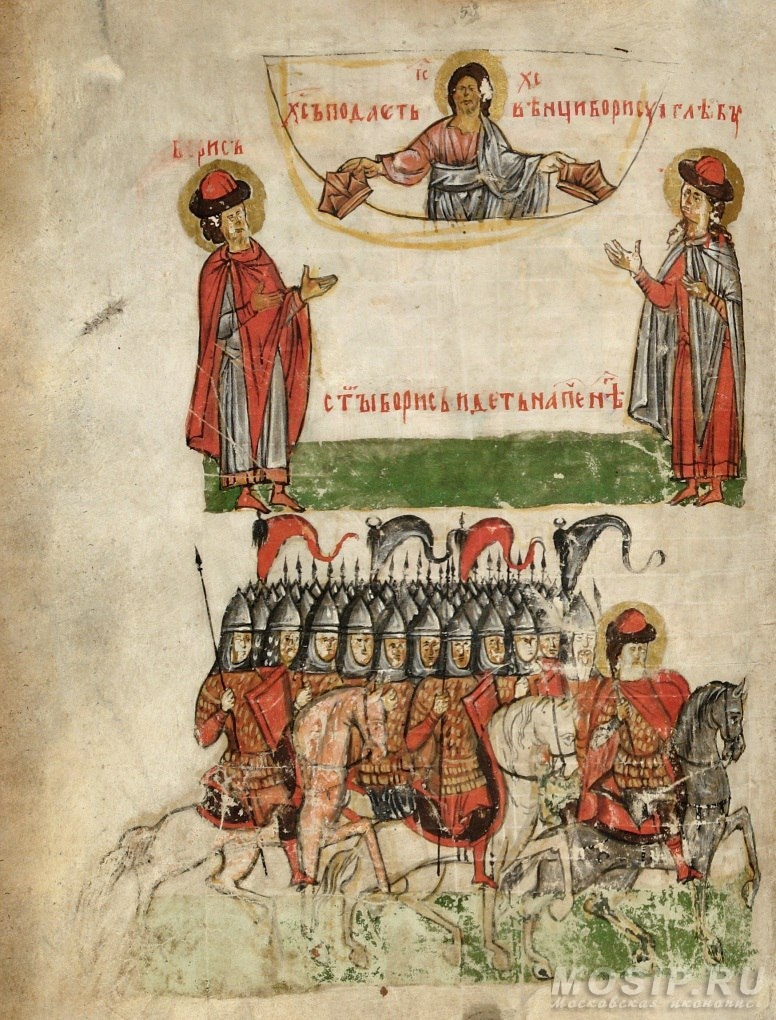 53
І҃С Х҃С
Х҃СЪ ПОДАЄТЬ ВѢНЦИ БОРИСУ И ГЛѢБУ
БОРИСЪ
С҃ТЪІ БОРИСЬ ИДЕТЬ НА ПЕЧЕНѢ
MOSIP.RU
Московская иконопись